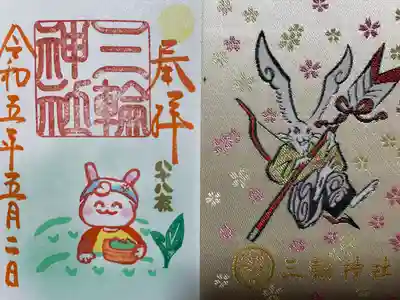 奉拝
三輪
神社
八十八夜
令和五年五月二日
三輪神社